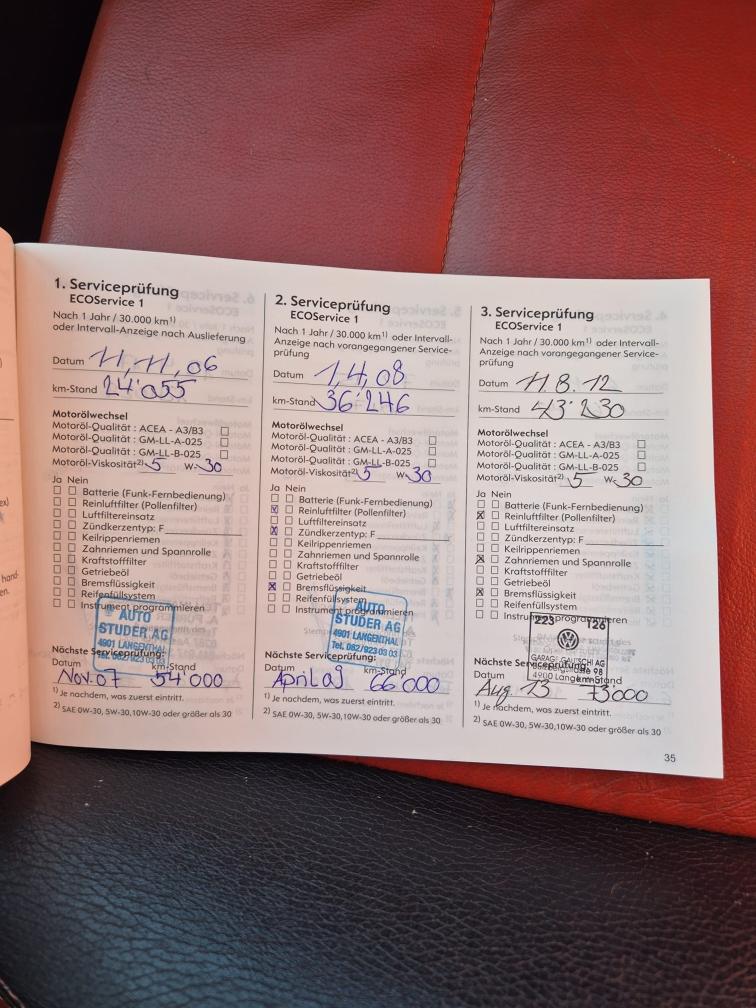 1. Serviceprüfung
ECOService 1
Nach 1 Jahr / 30.000 km1)
oder Intervall-Anzeige nach Auslieferung
Datum 11,11,06
km-Stand 24'055
Motorölwechsel
Motoröl-Qualität : ACEA - A3/B3
Motoröl-Qualität : GM-LL-A-025
Motoröl-Qualität : GM-LL-B-025
Motoröl-Viskosität2) 5 W- 30
Ja Nein
Batterie (Funk-Fernbedienung)
Reinluftfilter (Pollenfilter)
Luftfiltereinsatz
Zündkerzentyp: F
Keilrippenriemen
Zahnriemen und Spannrolle
Kraftstofffilter
Getriebeöl
Bremsflüssigkeit
Reifenfüllsystem
Instrument programmieren
AUTO
STUDER AG
4901 LANGENTHAL
Tel. 062/923 03 03
Nächste Serviceprüfung:
Datum km-Stand
Nov. 07 54'000
1) Je nachdem, was zuerst eintritt.
2) SAE 0W-30, 5W-30,10W-30 oder größer als 30
2. Serviceprüfung
ECOService 1
Nach 1 Jahr / 30.000 km1) oder Intervall-
Anzeige nach vorangegangener Service-
prüfung
Datum 1,4,08
km-Stand 36'246
Motorölwechsel
Motoröl-Qualität : ACEA - A3/B3
Motoröl-Qualität : GM-LL-A-025
Motoröl-Qualität : GM-LL-B-025
Motoröl-Viskosität2) 5 W- 30
Ja Nein
Batterie (Funk-Fernbedienung)
Reinluftfilter (Pollenfilter)
Luftfiltereinsatz
Zündkerzentyp: F
Keilrippenriemen
Zahnriemen und Spannrolle
Kraftstofffilter
Getriebeöl
Bremsflüssigkeit
Reifenfüllsystem
Instrument programmieren
AUTO
STUDER AG
4901 LANGENTHAL
Tel. 062/923 03 03
Nächste Serviceprüfung:
Datum km-Stand
April 09 66'000
1) Je nachdem, was zuerst eintritt.
2) SAE 0W-30, 5W-30,10W-30 oder größer als 30
3. Serviceprüfung
ECOService 1
Nach 1 Jahr / 30.000 km1) oder Intervall-
Anzeige nach vorangegangener Service-
prüfung
Datum 11.8.12
km-Stand 43'230
Motorölwechsel
Motoröl-Qualität : ACEA - A3/B3
Motoröl-Qualität : GM-LL-A-025
Motoröl-Qualität : GM-LL-B-025
Motoröl-Viskosität2) 5 W- 30
Ja Nein
Batterie (Funk-Fernbedienung)
Reinluftfilter (Pollenfilter)
Luftfiltereinsatz
Zündkerzentyp: F
Keilrippenriemen
Zahnriemen und Spannrolle
Kraftstofffilter
Getriebeöl
Bremsflüssigkeit
Reifenfüllsystem
Instrument programmieren
223 128
GARAGE GAUTSCHI AG
98
4900 Langenthal
Nächste Serviceprüfung:
Datum km-Stand
Aug 13 73'000
1) Je nachdem, was zuerst eintritt.
2) SAE 0W-30, 5W-30,10W-30 oder größer als 30
35